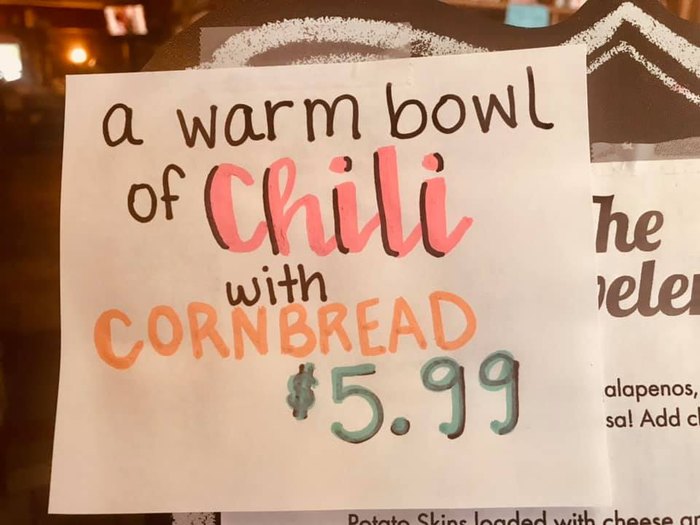 a warm bowl
of Chili
with
CORNBREAD
$5.99
he
veler
alapenos,
sa! Add c
Potato Skins loaded with cheese a